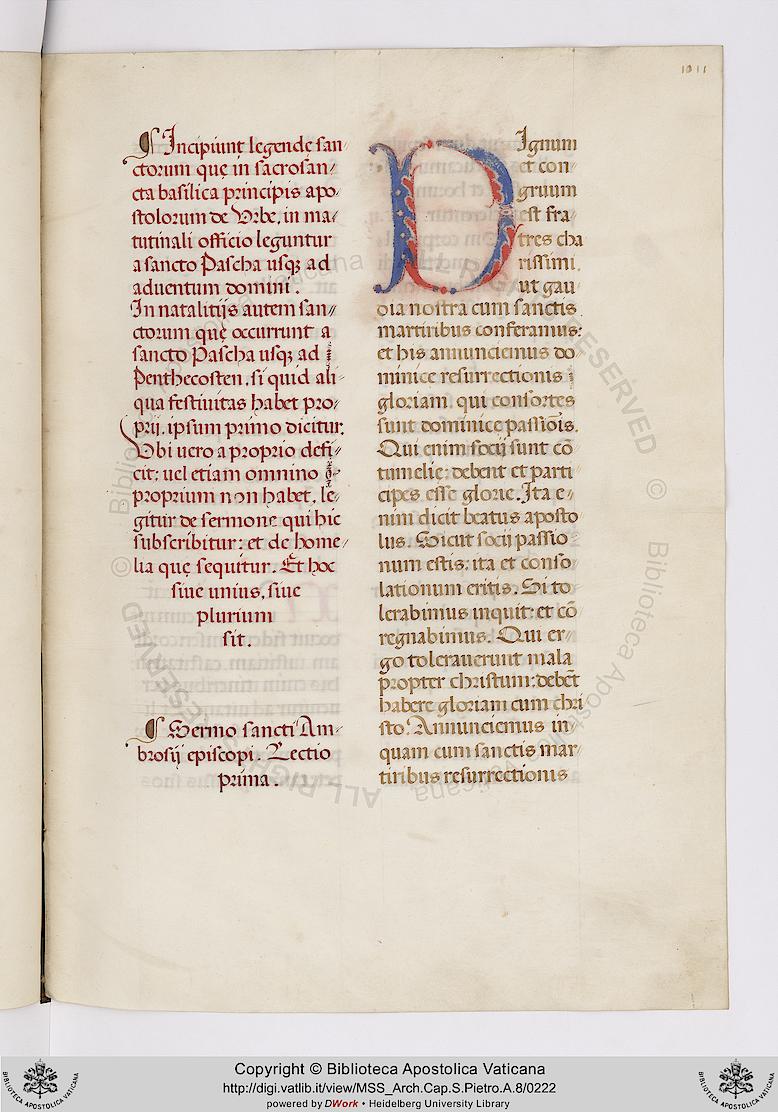 1011
¶ Incipiunt legende san-
ctorum que in sacrosan-
cta basilica principis apo-
stolorum de Vrbe, in ma-
tutinali officio leguntur
a sancto Pascha usq; ad
aduentum domini.
In natalitijs autem san-
ctorum que occurrunt a
sancto Pascha usq; ad
Penthecosten, si quid ali-
qua festiuitas habet pro-
prij, ipsum primo dicitur.
Vbi uero a proprio defi-
cit: uel etiam omnino
proprium non habet, le-
gitur de sermone qui hic
subscribitur: et de home-
lia que sequitur. Et hoc
siue unius, siue
plurium
sit.
¶ Sermo sancti Am-
brosij episcopi. Lectio
prima.
DIgnum
et con-
gruum
est fra-
tres cha
rissimi,
ut gau-
dia nostra cum sanctis
martiribus conferamus:
et his annunciemus do-
minice resurrectionis
gloriam, qui consortes
sunt dominice passiõis.
Qui enim socij sunt cõ-
tumelie: debent et parti
cipes esse glorie. Ita e-
nim dicit beatus aposto
lus. Sicut socij passio-
num estis: ita et conso-
lationum eritis. Si to
lerabimus inquit: et cõ
regnabimus. Qui er-
go tolerauerunt mala
propter christum: debẽt
habere gloriam cum chri
sto. Annunciemus in-
quam cum sanctis mar-
tiribus resurrectionis
Copyright © Biblioteca Apostolica Vaticana
http://digi.vatlib.it/view/MSS_Arch.Cap.S.Pietro.A.8/0222
powered by DWork • Heidelberg University Library
BIBLIOTECA APOSTOLICA VATICANA
BIBLIOTECA APOSTOLICA VATICANA
© Biblioteca Apostolica Vaticana
ALL RIGHTS RESERVED